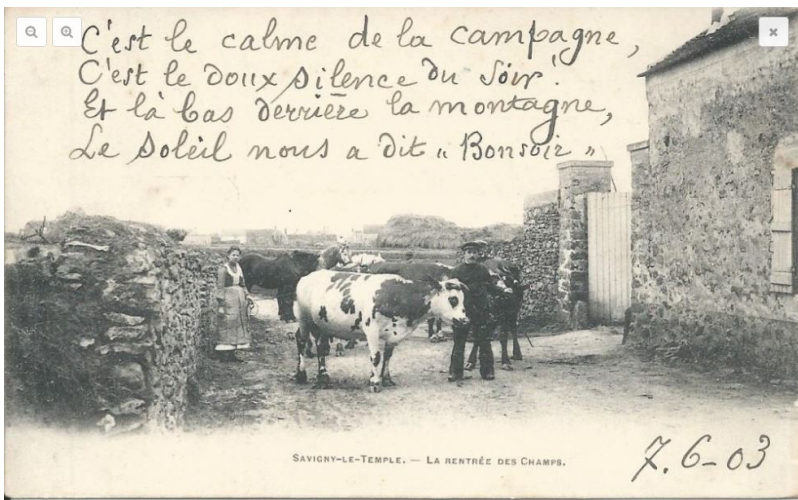 C'est le calme de la campagne,
C'est le doux silence du soir!
Et là bas derrière la montagne,
Le soleil nous a dit „ Bonsoir „
SAVIGNY-LE-TEMPLE. — LA RENTRÉE DES CHAMPS.
7. 6 - 03